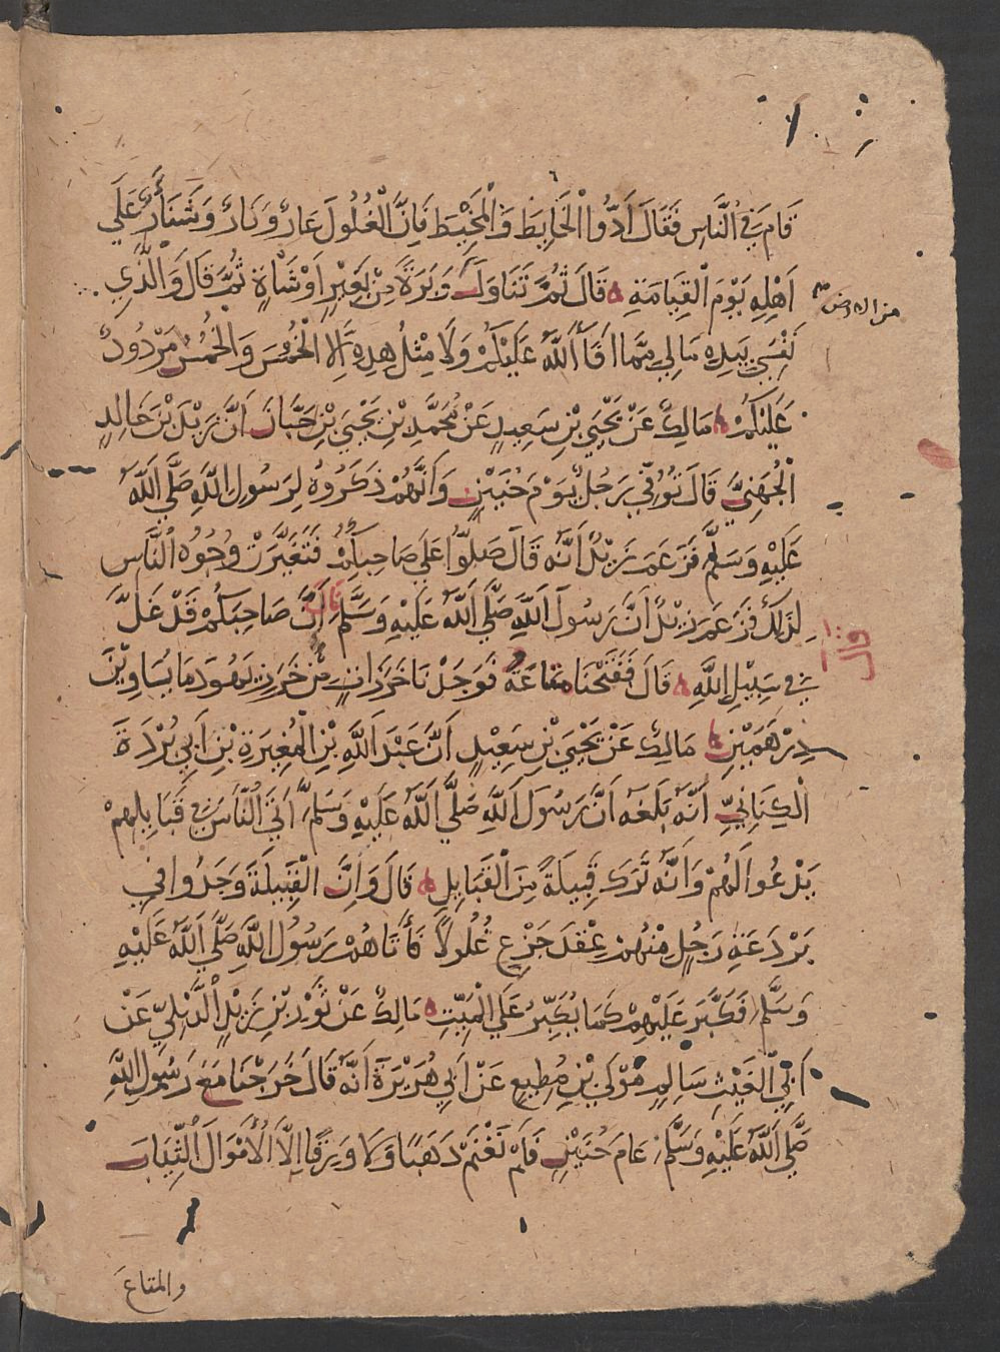 قَامَ فِي النَّاسِ فَقَالَ اَدُّوا الْخَايِطَ وَالْمَخِيْطَ فَاِنَّ الْغُلُولَ عَارٌ وَنَارٌ وَشَنَارٌ عَلَي
اَهْلِهِ يَوْمَ الْقِيَامَةِ قَالَ ثُمَّ تَنَاوَلَ وَبَرَةً مِنْ بَعِيْرٍ اَوْ شَاةٍ ثُمَّ قَالَ وَالَّذِي
من الارض
نَفْسِي بِيَدِهِ مَا لِي مِمَّا اَفَآءَ اللَّهُ عَلَيْكُمْ وَلَا مِثْلُ هٰذِهِ اِلَّا الْخُمُسَ وَالْخُمُسُ مَرْدُودٌ
عَلَيْكُمْ مَالِكٌ عَنْ يَحْيَي بْنِ سَعِيدٍ عَنْ مُحَمَّدِ بْنِ يَحْيَي بْنِ حَبَّانَ اَنَّ زَيْدَ بْنَ خَالِدٍ
الْجُهَنِيَّ قَالَ تُوُفِّيَ رَجُلٌ يَوْمَ حُنَيْنٍ وَاَنَّهُمْ ذَكَرُوهُ لِرَسُولِ اللَّهِ صَلَّي اللَّهُ
عَلَيْهِ وَسَلَّمَ فَزَعَمَ زَيْدٌ اَنَّهُ قَالَ صَلُّوا عَلَي صَاحِبِكُمْ فَتَغَيَّرَتْ وُجُوهُ النَّاسِ
لِذٰلِكَ فَزَعَمَ زَيْدٌ اَنَّ رَسُولَ اللَّهِ صَلَّي اللَّهُ عَلَيْهِ وَسَلَّمَ قال اِنَّ صَاحِبَكُمْ قَدْ غَلَّ
قال
فِي سَبِيْلِ اللَّهِ قَالَ فَفَتَحْنَا مَتَاعَهُ فَوَجَدْنَا خَرَزَاتٍ مِنْ خَرَزِ يَهُودَ مَا يُسَاوِيْنَ
دِرْهَمَيْنِ مَالِكٌ عَنْ يَحْيَي بْنِ سَعِيْدٍ اَنَّ عَبْدَ اللَّهِ بْنِ الْمُغِيرَةِ بْنِ اَبِي بُرْدَةَ
الْكِنَانِيِّ اَنَّهُ بَلَغَهُ اَنَّ رَسُولَ اللَّهِ صَلَّي اللَّهُ عَلَيْهِ وَسَلَّمَ اَتَي النَّاسَ فِي قَبَايِلِهِمْ
يَدْعُوا لَهُمْ وَاَنَّهُ تَرَكَ قَبِيلَةً مِنَ الْقَبَايِلِ قَالَ وَاِنَّ الْقَبِيلَةَ وَجَدُوا فِي
بَرْدَعَةِ رَجُلٍ مِنْهُمْ عِقْدَ جَزْعٍ غُلُولًا فَأَتَاهُمْ رَسُولُ اللَّهِ صَلَّي اللَّهُ عَلَيْهِ
وَسَلَّمَ فَكَبَّرَ عَلَيْهِمْ كَمَا يُكَبِّرُ عَلَي الْمَيِّتِ مَالِكٌ عَنْ ثَوْرِ بْنِ زَيْدٍ الدَّيْلِيِّ عَنْ
اَبِي الْغَيْثِ سَالِمٍ مَوْلَي بْنِ مُطِيعٍ عَنْ اَبِي هُرَيْرَةَ اَنَّهُ قَالَ خَرَجْنَا مَعَ رَسُولِ اللَّهِ
صَلَّي اللَّهُ عَلَيْهِ وَسَلَّمَ عَامَ حُنَيْنٍ فَلَمْ نَغْنَمْ ذَهَبًا وَلَا وَرِقًا اِلَّا الْاَمْوَالَ الثِّيَابَ
والمتاع